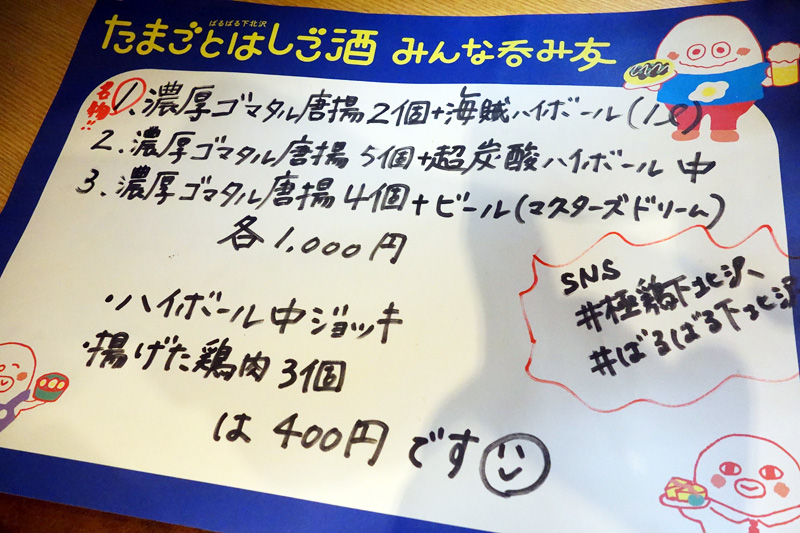 ばるばる下北沢
たまごとはしご酒 みんな呑み友
名物!!
1. 濃厚ゴマタル唐揚2個+海賊ハイボール(1ℓ)
2. 濃厚ゴマタル唐揚5個+超炭酸ハイボール 中
3. 濃厚ゴマタル唐揚4個+ビール(マスターズドリーム)
各1,000円
・ハイボール中ジョッキ
・揚げた鶏肉3個
は400円です
SNS
#極鶏下北沢
#ばるばる下北沢